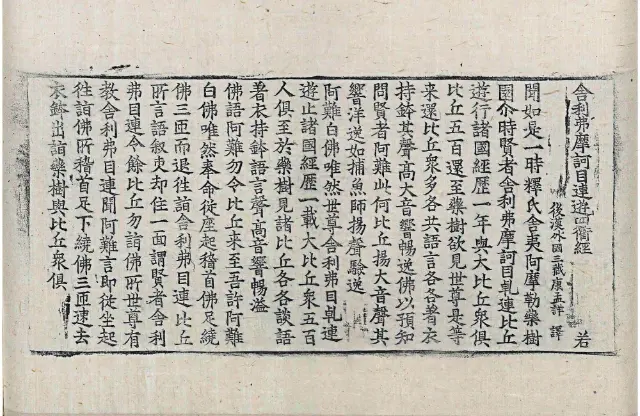 舍利弗摩訶目連遊四衢經 若
後漢外國三藏康孟詳 譯
聞如是一時釋氏舍夷阿摩勒藥樹
園尒時賢者舍利弗摩訶目乹連比丘
遊行諸國經歷一年與大比丘衆俱
比丘五百還至藥樹欲見世尊是等
来還比丘衆多各共語言各各著衣
持鉢其聲高大音響暢逸佛以預知
問賢者阿難此何比丘揚大音聲其
響洋逸如捕魚師揚聲驟逸
阿難白佛唯然世尊舍利弗目乹連
遊止諸國經歷一載大比丘衆五百
人俱至於藥樹見諸比丘各各談語
著衣持鉢語言聲高音響暢溢
佛語阿難勿令比丘来至吾許阿難
白佛唯然奉命從座起稽首佛足繞
佛三匝而退往詣舍利弗目連比丘
所言語叙却住一面謂賢者舍利
弗目連令餘比丘勿詣佛所世尊有
教舍利弗目連聞阿難言即從坐起
往詣佛所稽首足下繞佛三匝速去
衣鉢出詣藥樹與比丘衆俱